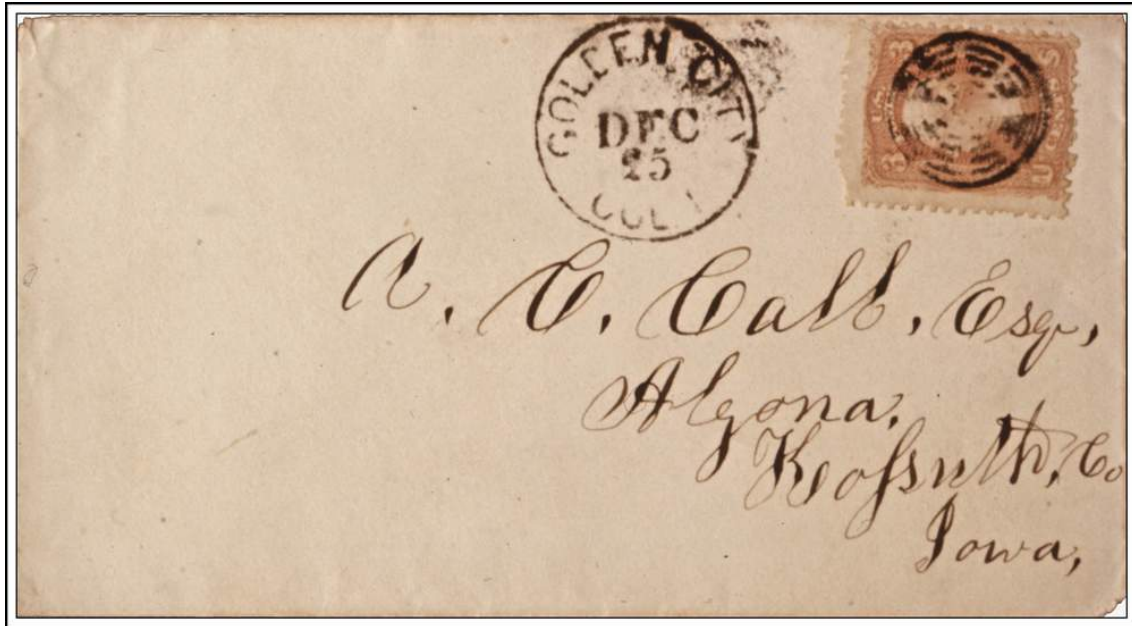 GOLDEN CITY
DEC
25
COL
3 U.S. 3
U
A. C. Call, Esq,
Algona,
Kossuth, Co
Iowa,